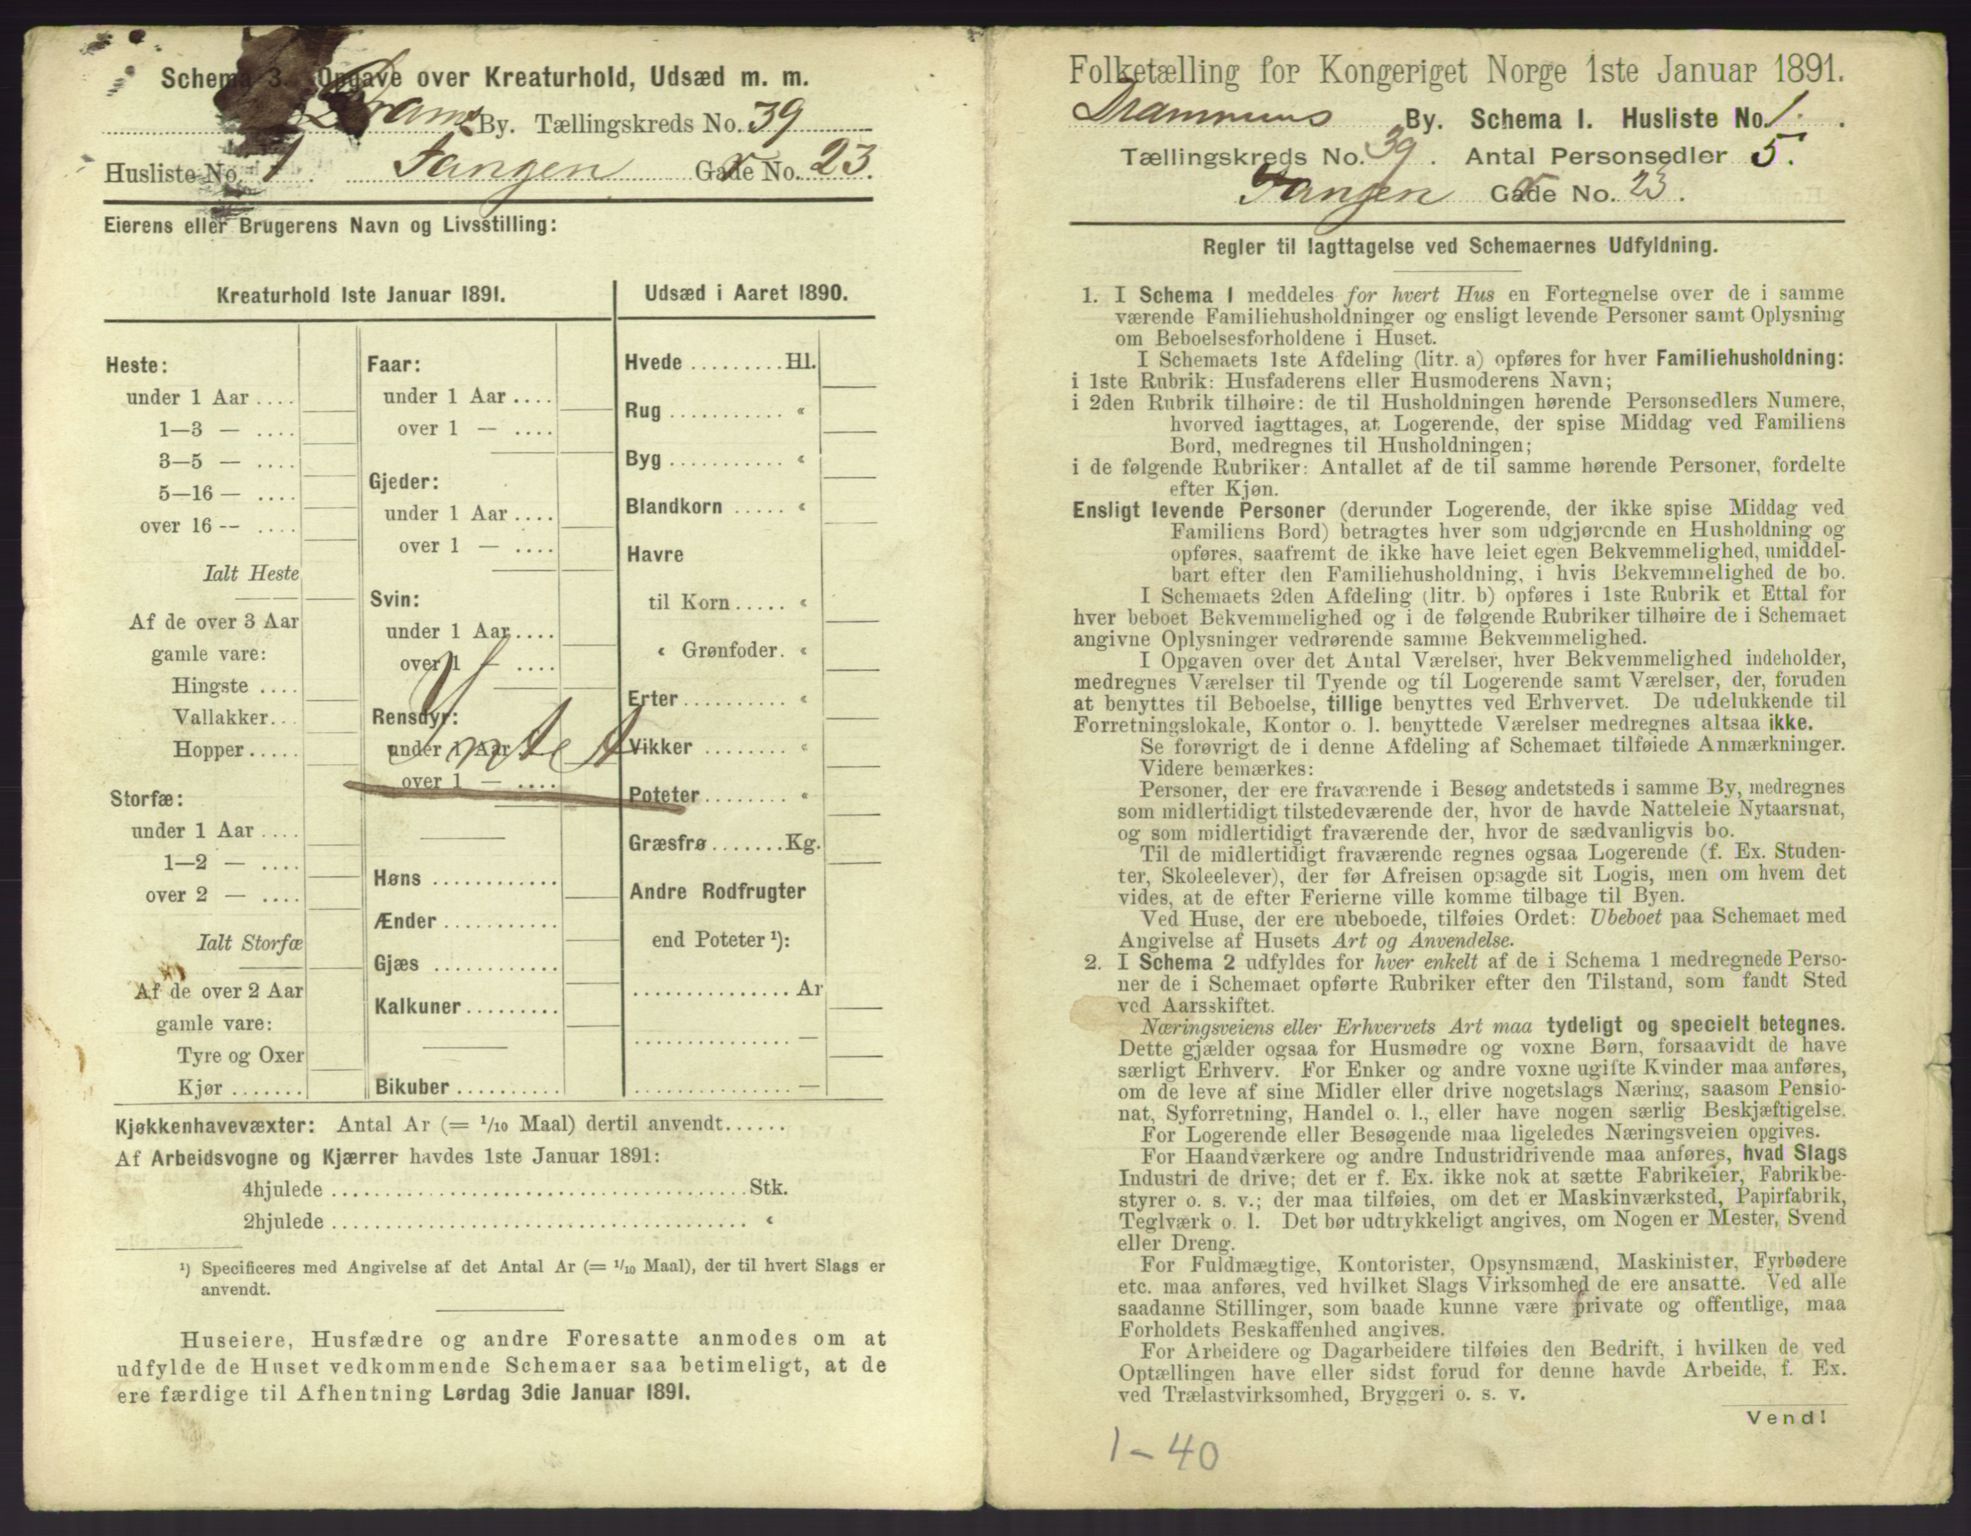 Schema 3. Opgave over Kreaturhold, Udsæd m. m.
Drams By. Tællingskreds No. 39
Husliste No. 1. Tangen Gade No. 23.
Eierens eller Brugerens Navn og Livsstilling:
Kreaturhold 1ste Januar 1891.
Heste:
under 1 Aar ....
1—3 — ....
3—5 — ....
5—16 — ....
over 16 -- ....
Ialt Heste
Af de over 3 Aar
gamle vare:
Hingste ....
Vallakker...
Hopper.....
Storfæ:
under 1 Aar ....
1—2 — ....
over 2 — ....
Ialt Storfæ
Af de over 2 Aar
gamle vare:
Tyre og Oxer
Kjør .......
Faar:
under 1 Aar ....
over 1 — ....
Gjeder:
under 1 Aar ....
over 1 — ....
Svin:
under 1 Aar....
over 1 — ....
Rensdyr:
under 1 Aar
Intet
over 1 — ....
Høns ............
Ænder ...........
Gjæs ............
Kalkuner.........
Bikuber ..........
Udsæd i Aaret 1890.
Hvede .........Hl.
Rug ........... «
Byg ........... «
Blandkorn ..... «
Havre
til Korn..... «
« Grønfoder. «
Erter .......... «
Vikker ........ «
Poteter........ «
Græsfrø.......Kg.
Andre Rodfrugter
end Poteter ¹):
............... Ar
............... —
............... —
Kjøkkenhavevæxter: Antal Ar (= 1/10 Maal) dertil anvendt......
Af Arbeidsvogne og Kjærrer havdes 1ste Januar 1891:
4hjulede ......................................Stk.
2hjulede ...................................... «
¹) Specificeres med Angivelse af det Antal Ar (= 1/10 Maal), der til hvert Slags er
anvendt.
Huseiere, Husfædre og andre Foresatte anmodes om at
udfylde de Huset vedkommende Schemaer saa betimeligt, at de
ere færdige til Afhentning Lørdag 3die Januar 1891.
Folketælling for Kongeriget Norge 1ste Januar 1891.
Drammens By. Schema I. Husliste No. 1.
Tællingskreds No. 39. Antal Personsedler 5.
Tangen Gade No. 23.
Regler til Iagttagelse ved Schemaernes Udfyldning.
1. I Schema 1 meddeles for hvert Hus en Fortegnelse over de i samme
værende Familiehusholdninger og ensligt levende Personer samt Oplysning
om Beboelsesforholdene i Huset.
I Schemaets 1ste Afdeling (litr. a) opføres for hver Familiehusholdning:
i 1ste Rubrik: Husfaderens eller Husmoderens Navn;
i 2den Rubrik tilhøire: de til Husholdningen hørende Personsedlers Numere,
hvorved iagttages, at Logerende, der spise Middag ved Familiens
Bord, medregnes til Husholdningen;
i de følgende Rubriker: Antallet af de til samme hørende Personer, fordelte
efter Kjøn.
Ensligt levende Personer (derunder Logerende, der ikke spise Middag ved
Familiens Bord) betragtes hver som udgjørende en Husholdning og
opføres, saafremt de ikke have leiet egen Bekvemmelighed, umiddel-
bart efter den Familiehusholdning, i hvis Bekvemmelighed de bo.
I Schemaets 2den Afdeling (litr. b) opføres i 1ste Rubrik et Ettal for
hver beboet Bekvemmelighed og i de følgende Rubriker tilhøire de i Schemaet
angivne Oplysninger vedrørende samme Bekvemmelighed.
I Opgaven over det Antal Værelser, hver Bekvemmelighed indeholder,
medregnes Værelser til Tyende og til Logerende samt Værelser, der, foruden
at benyttes til Beboelse, tillige benyttes ved Erhvervet. De udelukkende til
Forretningslokale, Kontor o. l. benyttede Værelser medregnes altsaa ikke.
Se forøvrigt de i denne Afdeling af Schemaet tilføiede Anmærkninger.
Videre bemærkes:
Personer, der ere fraværende i Besøg andetsteds i samme By, medregnes
som midlertidigt tilstedeværende der, hvor de havde Natteleie Nytaarsnat,
og som midlertidigt fraværende der, hvor de sædvanligvis bo.
Til de midlertidigt fraværende regnes ogsaa Logerende (f. Ex. Studen-
ter, Skoleelever), der før Afreisen opsagde sit Logis, men om hvem det
vides, at de efter Ferierne ville komme tilbage til Byen.
Ved Huse, der ere ubeboede, tilføies Ordet: Ubeboet paa Schemaet med
Angivelse af Husets Art og Anvendelse.
2. I Schema 2 udfyldes for hver enkelt af de i Schema 1 medregnede Perso-
ner de i Schemaet opførte Rubriker efter den Tilstand, som fandt Sted
ved Aarsskiftet.
Næringsveiens eller Erhvervets Art maa tydeligt og specielt betegnes.
Dette gjælder ogsaa for Husmødre og voxne Børn, forsaavidt de have
særligt Erhverv. For Enker og andre voxne ugifte Kvinder maa anføres,
om de leve af sine Midler eller drive nogetslags Næring, saasom Pensio-
nat, Syforretning, Handel o. l., eller have nogen særlig Beskjæftigelse.
For Logerende eller Besøgende maa ligeledes Næringsveien opgives.
For Haandværkere og andre Industridrivende maa anføres, hvad Slags
Industri de drive; det er f. Ex. ikke nok at sætte Fabrikeier, Fabrikbe-
styrer o. s. v.; der maa tilføies, om det er Maskinværksted, Papirfabrik,
Teglværk o. l. Det bør udtrykkeligt angives, om Nogen er Mester, Svend
eller Dreng.
For Fuldmægtige, Kontorister, Opsynsmænd, Maskinister, Fyrbødere
etc. maa anføres, ved hvilket Slags Virksomhed de ere ansatte. Ved alle
saadanne Stillinger, som baade kunne være private og offentlige, maa
Forholdets Beskaffenhed angives.
For Arbeidere og Dagarbeidere tilføies den Bedrift, i hvilken de ved
Optællingen have eller sidst forud for denne havde Arbeide, f. Ex.
ved Trælastvirksomhed, Bryggeri o. s. v.
Vend!
1-40